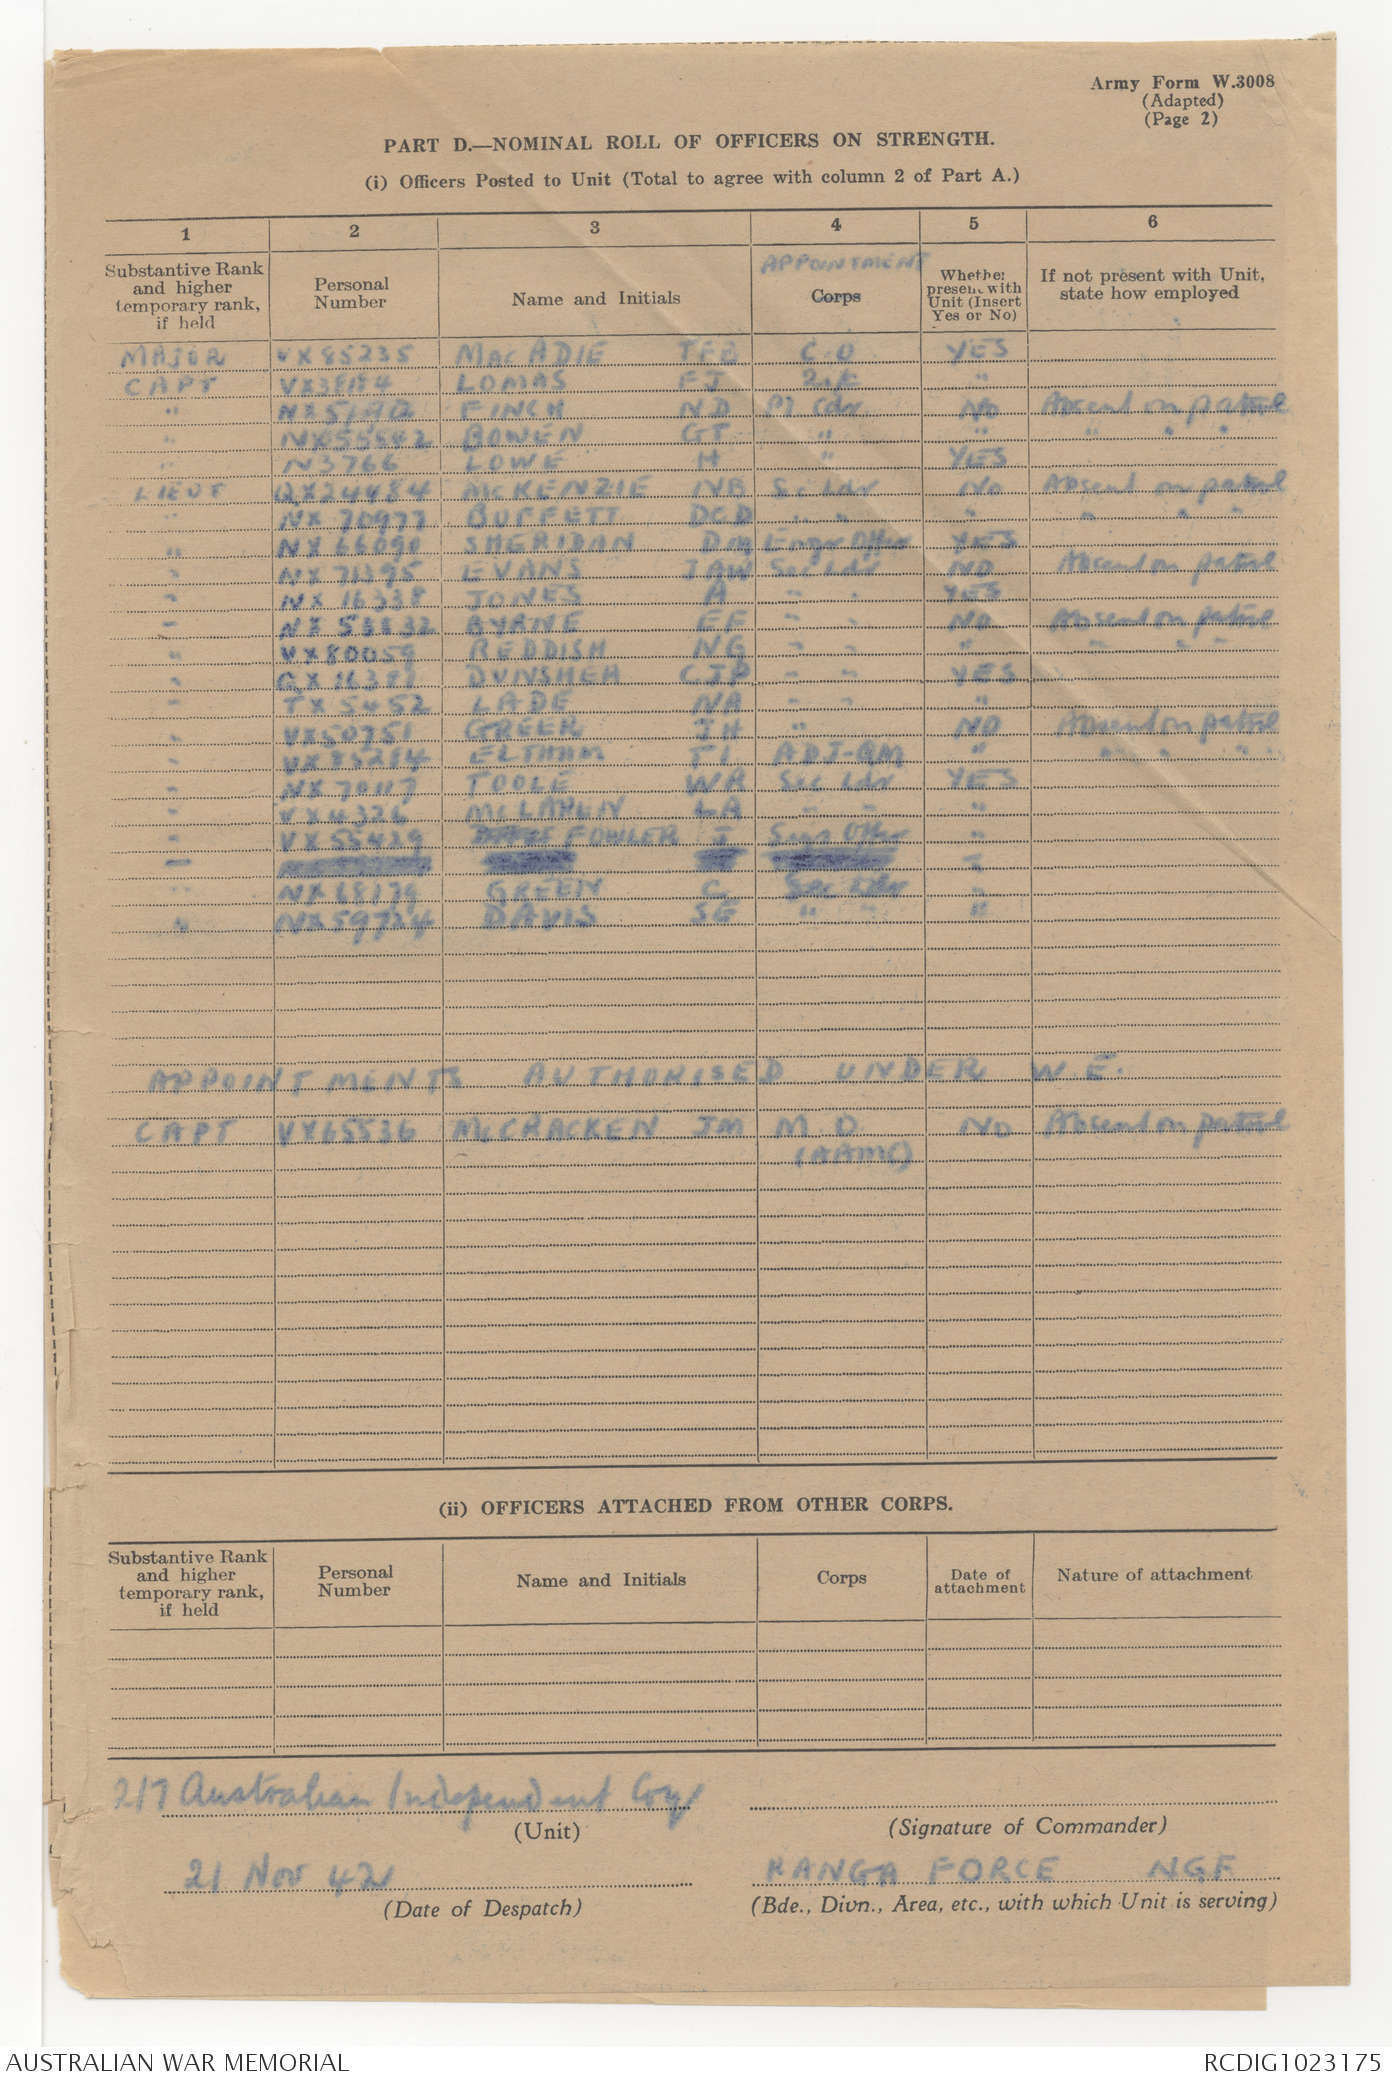 Army Form W.3008
(Adapted)
(Page 2)
PART D.—NOMINAL ROLL OF OFFICERS ON STRENGTH.
(i) Officers Posted to Unit (Total to agree with column 2 of Part A.)
1 2 3 4 5 6
Substantive Rank and higher temporary rank, if held Personal Number Name and Initials APPOINTMENT Corps Whether present with Unit (Insert Yes or No) If not present with Unit, state how employed
MAJOR VX85235 MacADIE TFB C.O YES
CAPT VX38184 LOMAS FJ 2i/c "
" FINCH ND Pl Cdr No Absent on patrol
" BOWEN GT " " " " "
" N3766 LOWE H " YES
LIEUT QX24484 McKENZIE NB Sec Ldr No Absent on patrol
" NX70977 BUFFETT DCD " " " " " "
" NX66090 SHERIDAN Engr Offr YES
" NX71395 EVANS JAW Sec Ldr NO Absent on patrol
" NX16338 JONES A " " YES
" NX53832 BYRNE EF " " NO Absent on patrol
" VX80059 REDDISH NG " " " " " "
" DUNSHEA CJP " " YES
" TX5452 LADE NA " " "
" VX50751 GREEN JH " NO Absent on patrol
" VX85284 ELTHAM TI ADJ-QM " " " "
" NX70117 TOOLE WA Sec Ldr YES
" VX4326 LA " " "
" VX55429 FOWLER J Sigs Offr "
" NX68139 GREEN C Sec Ldr "
" NX59724 DAVIS SG " " "
APPOINTMENTS AUTHORISED UNDER W.E.
CAPT VX65536 McCRACKEN JM M.O NO Absent on patrol
(AAMC)
(ii) OFFICERS ATTACHED FROM OTHER CORPS.
Substantive Rank and higher temporary rank, if held Personal Number Name and Initials Corps Date of attachment Nature of attachment
2/7 Australian Independent Coy
(Unit) (Signature of Commander)
21 Nov 42 KANGA FORCE NGF
(Date of Despatch) (Bde., Divn., Area, etc., with which Unit is serving)
AUSTRALIAN WAR MEMORIAL RCDIG1023175